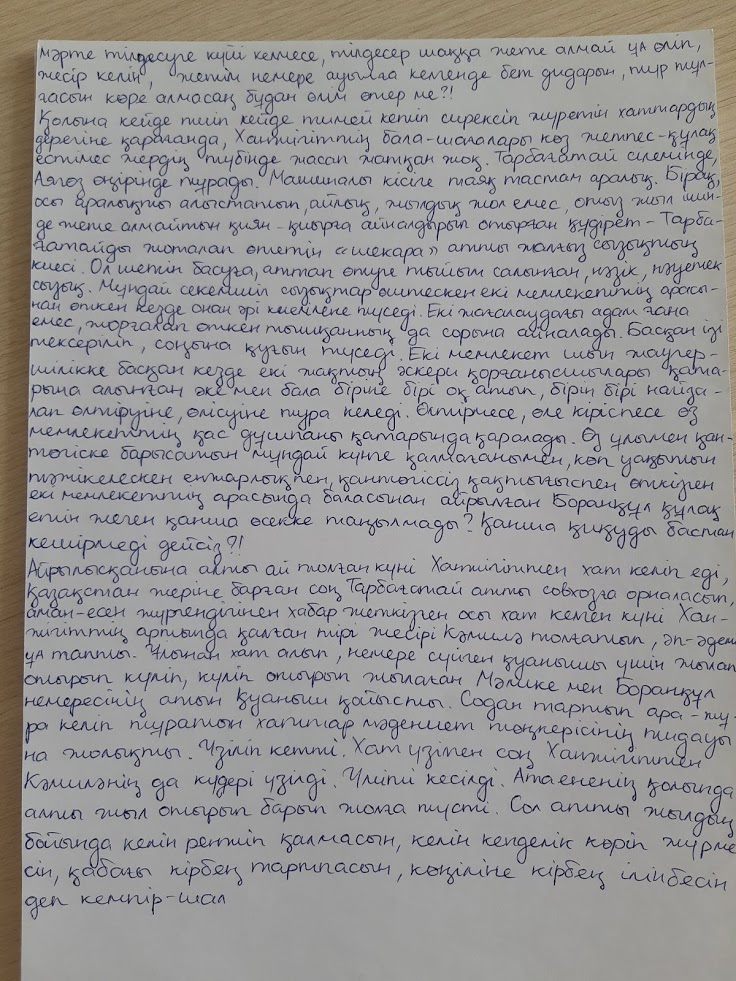 мәрте тілдесуге күші келмесе, тілдесер шаққа жете алмай ұл өліп,
жесір келін, жетім немере ауылға келгенде бет дидарын, тұр тұл-
ғасын көре алмасаң бұдан өлім өтер ме?!
Қолына кейде тиіп кейде тимей кетіп сирексіп жүретін хаттардың
дерегіне қарағанда, Хантжігіттің бала-шағалары көз жетпес-құлақ
естімес жердің түбінде жасап жатқан жоқ. Тарбағатай сілемінде,
Аягөз өңірінде тұрады. Машиналы кісіге таяқ тастам аралық. Бірақ,
осы аралықты алыстатып, айлық, жылдық жол емес, отыз жыл шін-
де жете алмайтын қиян-қиырға айналдырып отырған құдірет-Тарба-
ғатайды жоталап өтетін «шекара» атты жалғыз сызықтың
киесі. Ол шетін басуға, аттап өтуге тыйым салынған, нәзік, нәуетек
сызық. Мұндай секемшіл сызықтар өштескен екі мемлекеттің арасы-
нан өткен кезде онан әрі киелілене түседі. Екі жағалаудағы адам ғана
емес, жорғалап өткен тышқанның да сорына айналады. Басқан ізі
тексеріліп, соңына қуғын түседі. Екі мемлекет шын жаугер-
шілікке басқан кезде екі жақтың әскери қорғанысшылары қата-
рына алынған әке мен бала біріне бірі оқ атып, бірін бірі найза-
лап өлтіруіне, өлісуіне тура келеді. Өлтірмесе, өле кіріспесе өз
мемлекетінің қас дұшпаны қатарында қаралады. Өз ұлымен қан-
төгіске барысатын мұндай күнге қалмағанымен, көп уақытын
тәжікелескен ежарлықпен, қантөгіссіз қақтығыспен өткізген
екі мемлекеттің арасында баласынан айрылған Боранқұл құлақ
етін жеген қанша өсекке таңылмады? Қанша қиқуды бастан
кешірмеді дейсіз?!
Айрылысқанына алты ай толған күні Хантжігіттен хат келіп еді,
Қазақстан жеріне барған соң Тарбағатай атты совхозға орналасып,
аман-есен жүргендігінен хабар жеткізген осы хат келген күні Хан-
жігіттің артында қалған тірі жесірі Кәмилә толғатып, әп-әдемі
ұл тапты. Ұлынан хат алып, немере сүйген қуанышы үшін жылап
отырып күліп, күліп отырып жылаған Мәлике мен Боранқұл
немересінің атын Қуаныш қойысты. Содан тартып ара-тұ-
ра келіп тұратын хаттар мәдениет төңкерісінің тыдауы-
на жолықты. Үзіліп кетті. Хат үзілген соң Хантжігіттен
Кәмиләнің да күдері үзілді. Үміті кесілді. Атаененің қолында
алты жыл отырып барып жолға түсті. Сол алты жылдың
бойында келін ренжіп қалмасын, келін кемделік көріп жүрме
сін, қабағы кірбең тартпасын, көңіліне кірбең ілінбесін
деп кемпір-шал